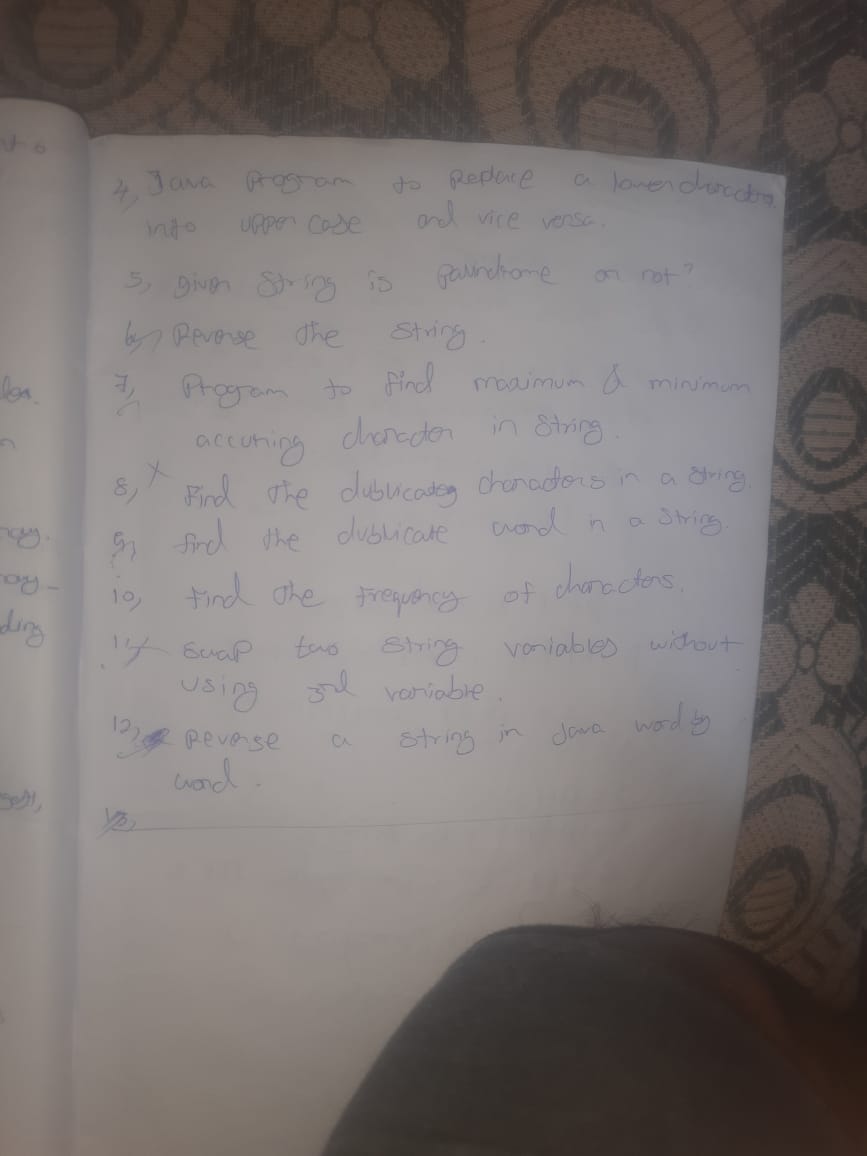 nt o
4, Java Program to Replace a lower charactors
into upper case and vice versa.
5, given String is Palindrome or not?
6, Reverse the String.
7, Program to find maximum & minimum
accuring character in String.
8, Find the dublicates characters in a String.
9, find the dublicate word in a String.
10, Find the frequency of characters.
11, swap two String variables without
using 3rd variable.
12, Reverse a string in Java word by
word.
13,
ding